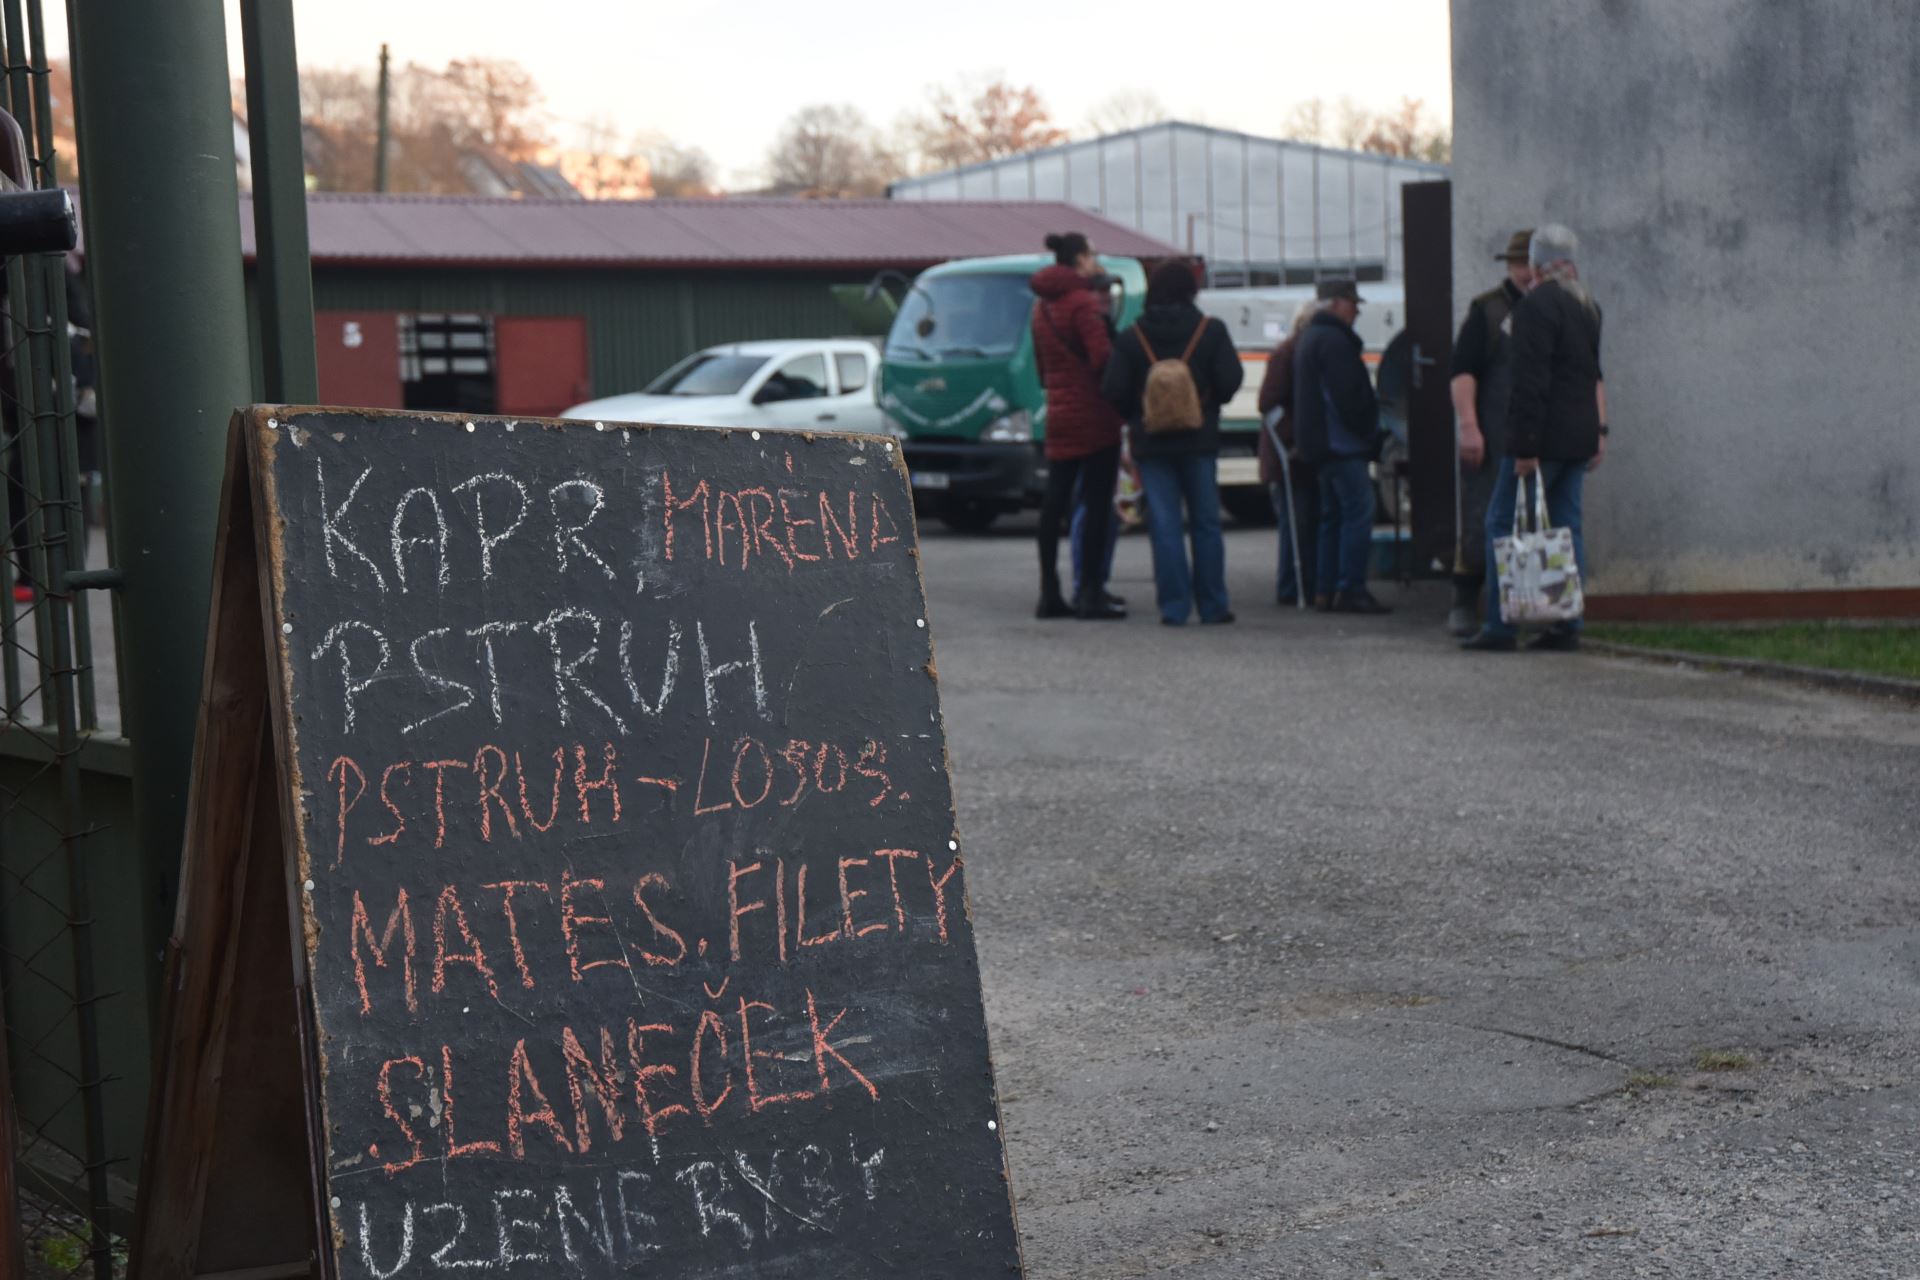 KAPR MARÉNA
PSTRUH
PSTRUH - LOSOS.
MATES. FILETY
SLANEČEK
UZENE RYBY
2
4